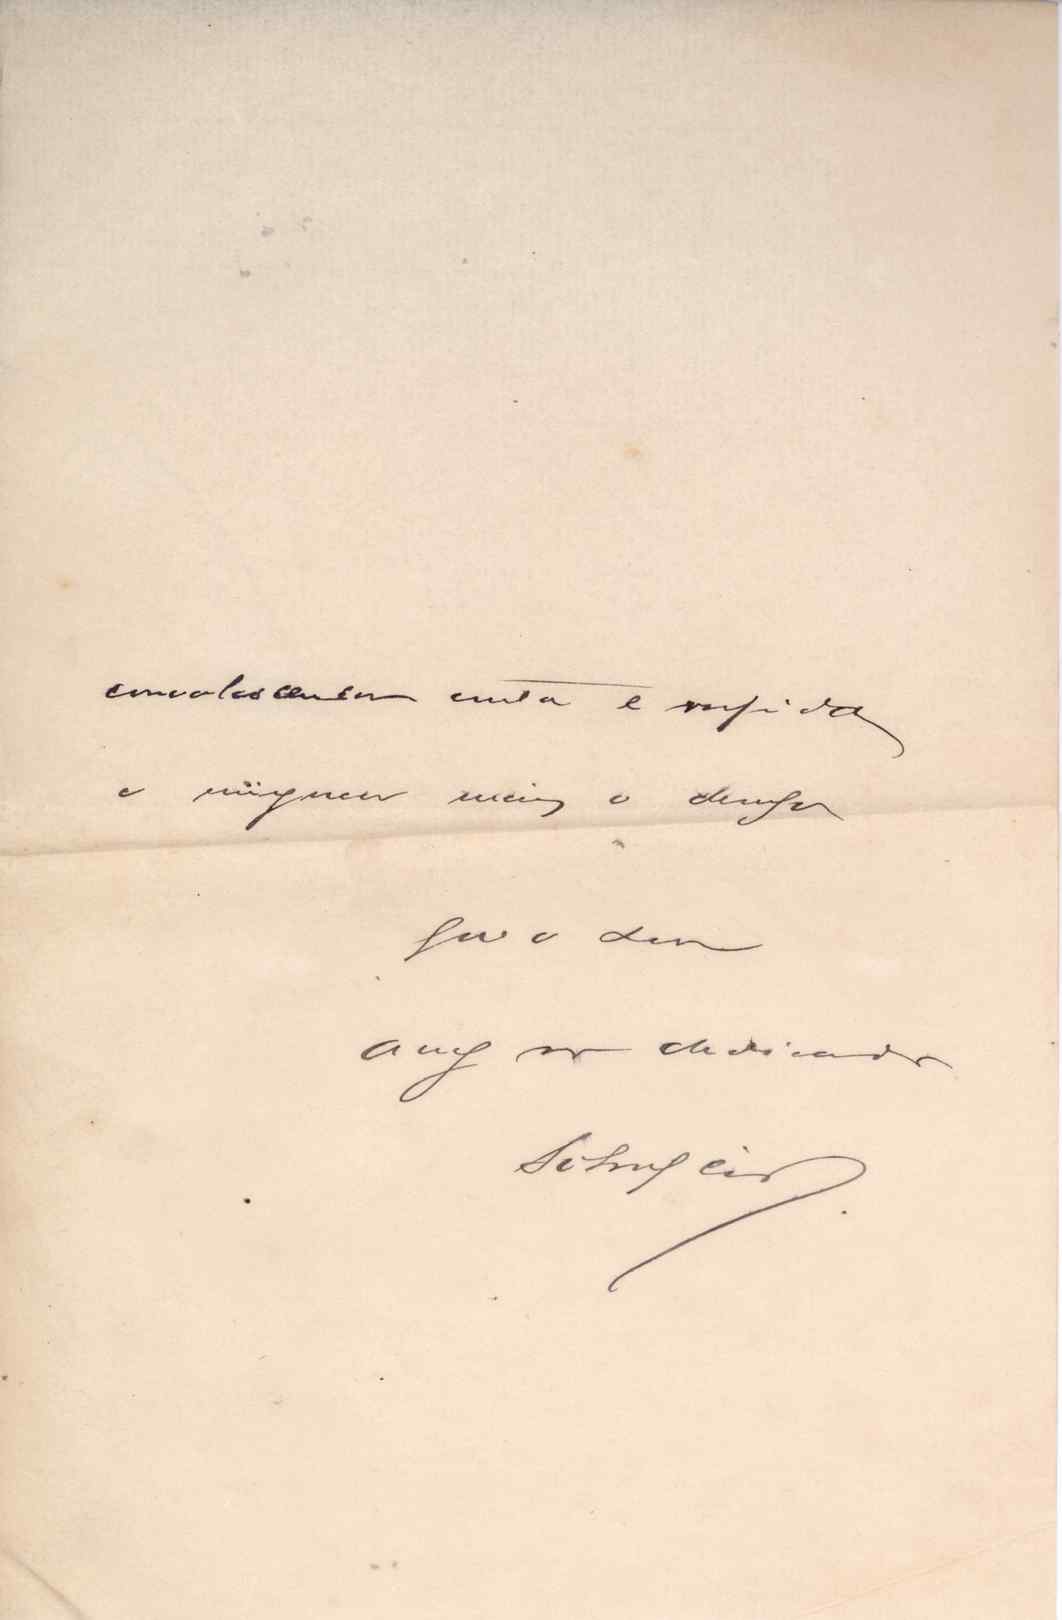 convalescença curta e rapida
e ninguem mais o deseja
que o seu
amº dedicado